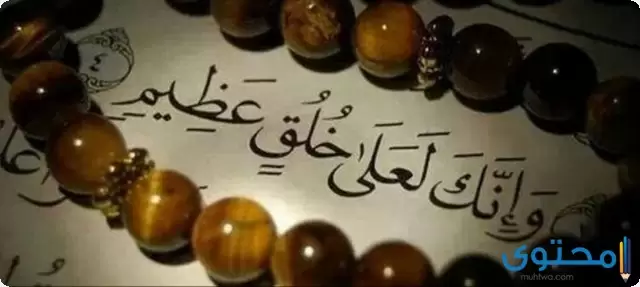 وَإِنَّكَ لَعَلَىٰ خُلُقٍ عَظِيمٍ
٤
محتوى
muhtwa.com